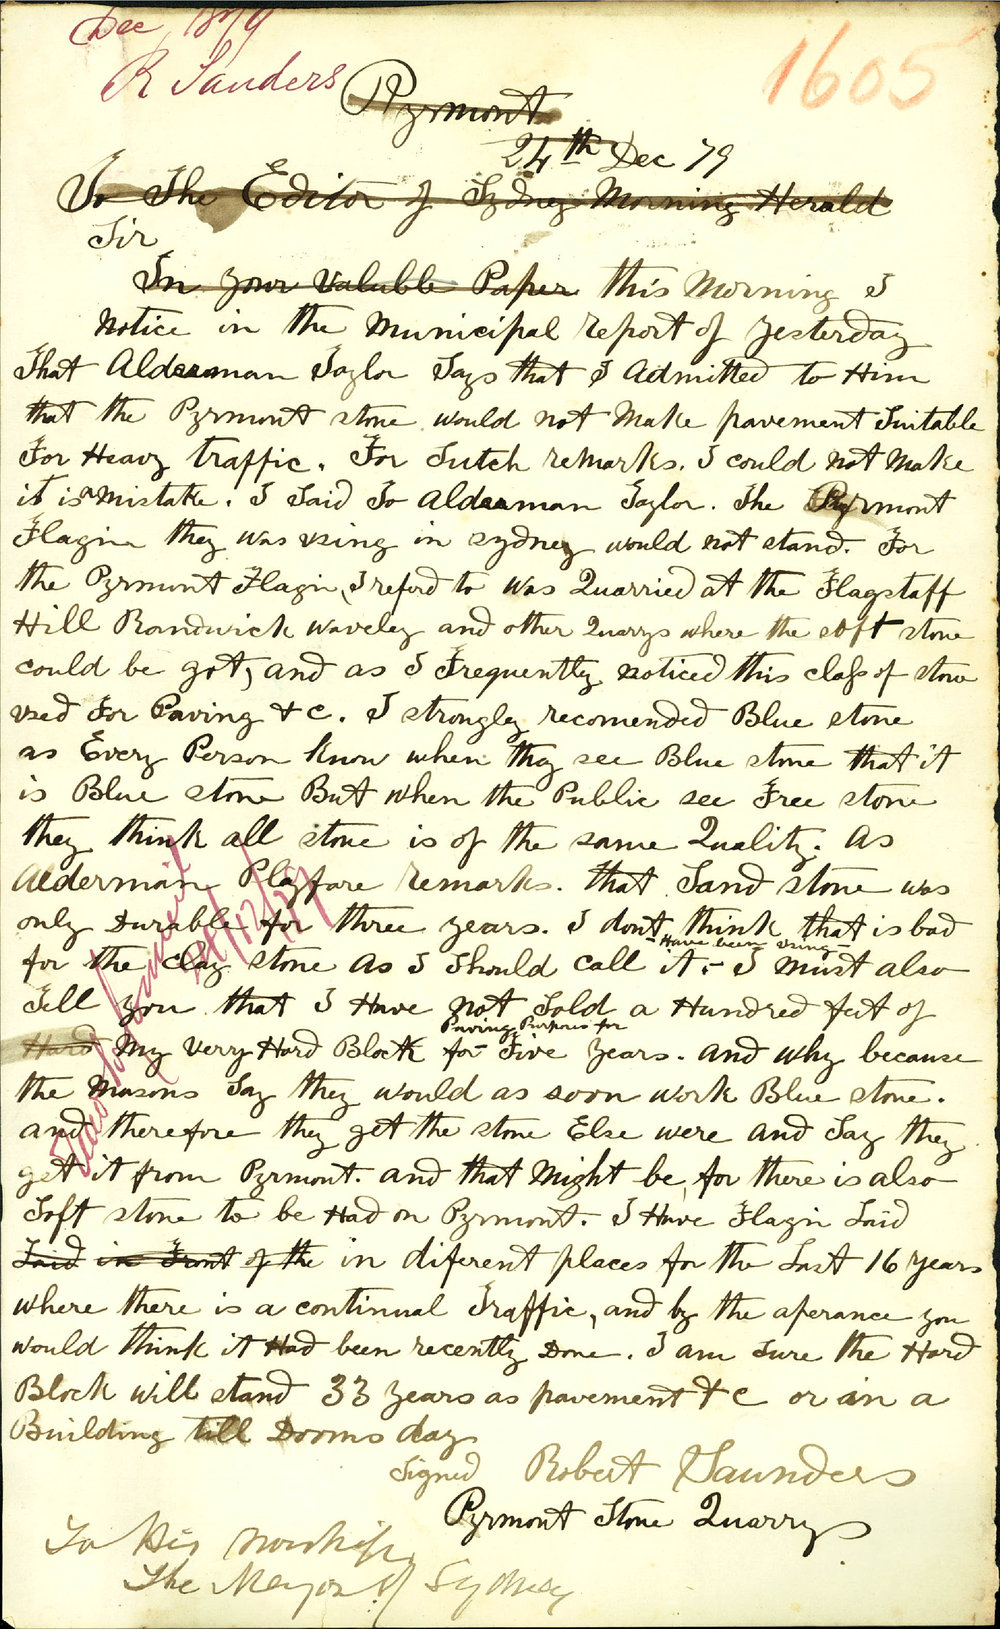 Dec 1879
R Sanders
1605
Pyrmont
24th Dec 79
To The Editor of Sydney Morning Herald
Sir
In your Valuble Paper this Morning I
Notice in the Municipal report of yesterday
That Alderman Taylor Says that I Admitted to Him
that the Pyrmont stone would not Make pavement Suitable
For Heavy traffic. For Sutch remarks. I could not Make
it is a Mistake. I Said To Alderman Taylor. The Pyrmont
Flagin they was using in sydney would not stand. For
the Pyrmont Flagin, I referd to was Quarried at the Flagstaff
Hill Randwick waveley and other Quarrys where the soft stone
could be got, and as I Frequently noticed this class of stone
used For Paving &c. I strongly recomended Blue stone
as Every Person know when they see Blue stone that it
is Blue stone But when the Public see Free stone
they think all stone is of the same Quality. As
Alderman Playfare remarks. that Sand stone was
only Durable for three years. I dont think that is bad
for the Clay stone as I Should call it,- Have been using - I must also
Tell you that I Have not Sold a Hundred feet of
Hard My Very Hard Block for Paving Purposes for Five years. and why because
the Masons Say they would as soon work Blue stone.
and therefore they get the stone Else were and Say they
get it from Pyrmont. and that Might be, for there is also
Soft stone to be Had on Pyrmont. I Have Flagin Laid
Laid in Front of the in diferent places for the Last 16 years
where there is a continual Traffic, and by the aperance you
would think it Had been recently Done. I am sure the Hard
Block will stand 33 years as pavement &c or in a
Building till Dooms day
Signed Robert Saunders
Pyrmont Stone Quarrys
To His Worship
The Mayor of Sydney